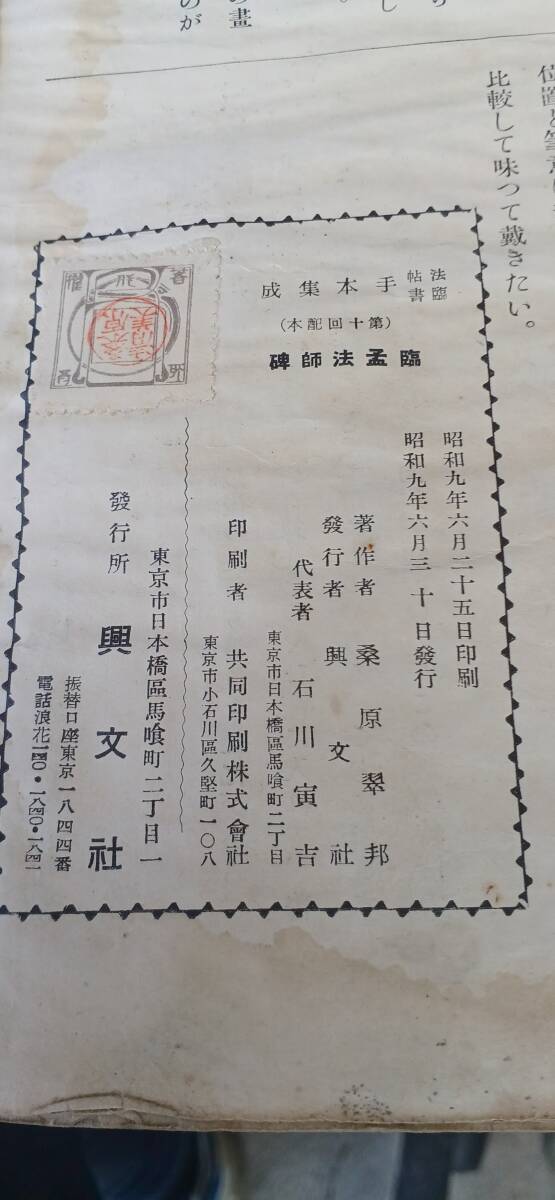 比較して味つて戴きたい。
法帖
臨書
手本集成
(第十回配本)
臨孟法師碑
昭和九年六月二十五日印刷
昭和九年六月三十日發行
著作者 桑原翠邦
發行者 興文社
代表者 石川寅吉
東京市日本橋區馬喰町二丁目
印刷者 共同印刷株式會社
東京市小石川區久堅町一〇八
東京市日本橋區馬喰町二丁目一
發行所 興文社
振替口座東京一八四四番